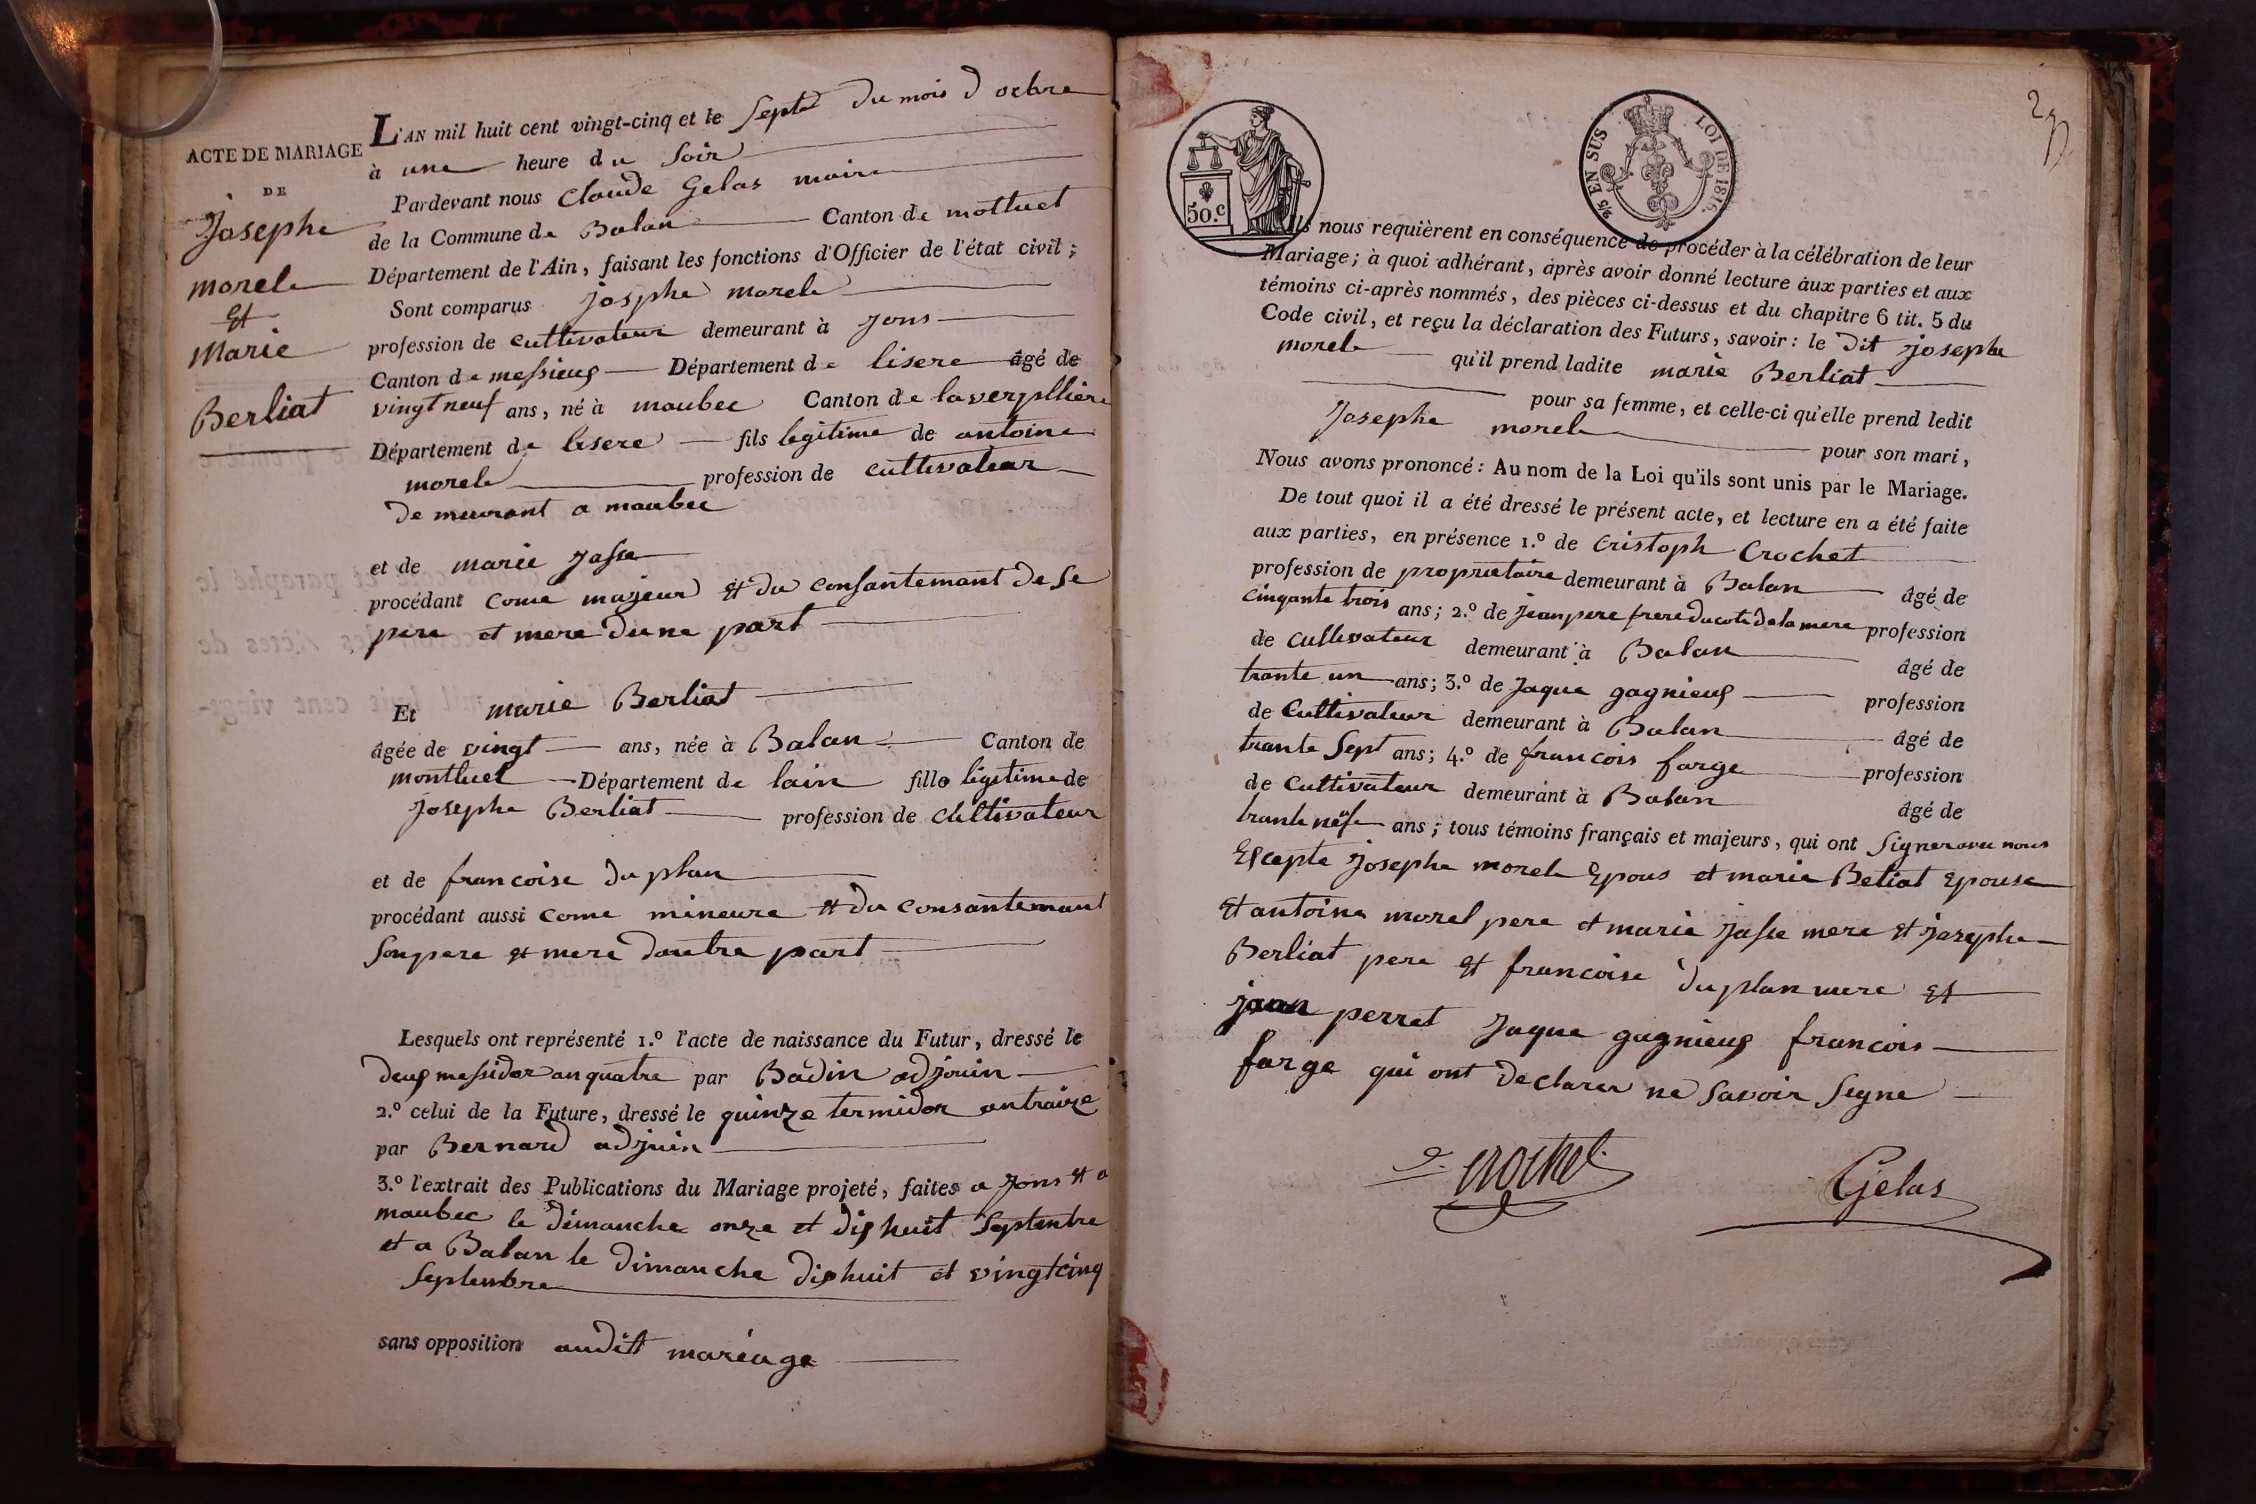 ACTE DE MARIAGE
DE
Josephe
morele
et
Marie
Berliat
L'AN mil huit cent vingt-cinq et le Septe du mois d octbre
à une heure du Soir
Pardevant nous Claude Gelas maire
de la Commune de Balan Canton de motluel
Département de l'Ain, faisant les fonctions d'Officier de l'état civil;
Sont comparus josphe morele
profession de cultivateur demeurant à Jons
Canton de messieux Département de lisere âgé de
vingt neuf ans, né à maubec Canton de laverpilliere
Département de lisere fils legitime de antoine
morele profession de cultivateur
de meurant a maubec
et de marie Jasse
procédant come majeur et du consantemant de se
pere et mere dune part
Et marie Berliat
âgée de vingt ans, née à Balan Canton de
montluel Département de lain fille légitime de
Josephe Berliat profession de cultivateur
et de francoise duplan
procédant aussi come mineure et du consantemant
Son pere et mere dautre part
Lesquels ont représenté 1.º l'acte de naissance du Futur, dressé le
deux messidor an quatre par Badin adjouin
2.º celui de la Future, dressé le quinze termidor antraize
par Bernard adjuin
3.º l'extrait des Publications du Mariage projeté, faites a Jons et a
maubec le dimanche onze et dix huit Septenbre
et a Balan le dimanche dix huit et vingt cinq
Septenbre
sans opposition audit mariage
50.c
2/5 EN SUS LOI DE 1816.
Ils nous requièrent en conséquence de procéder à la célébration de leur
Mariage; à quoi adhérant, après avoir donné lecture aux parties et aux
témoins ci-après nommés, des pièces ci-dessus et du chapitre 6 tit. 5 du
Code civil, et reçu la déclaration des Futurs, savoir: le dit josephe
morele qu'il prend ladite marie Berliat
pour sa femme, et celle-ci qu'elle prend ledit
Josephe morele pour son mari,
Nous avons prononcé: Au nom de la Loi qu'ils sont unis par le Mariage.
De tout quoi il a été dressé le présent acte, et lecture en a été faite
aux parties, en présence 1.º de Cristoph Crochet
profession de proprietaire demeurant à Balan âgé de
cinqante trois ans; 2.º de Jean pere frere du coté de la mere profession
de cultivateur demeurant à Balan âgé de
trante un ans; 3.º de Jaque gagnieux profession
de Cultivateur demeurant à Balan âgé de
trante Sept ans; 4.º de francois farge profession
de Cultivateur demeurant à Balan âgé de
trante neuf ans; tous témoins français et majeurs, qui ont Signer avec nous
Excepte Josephe morele Epous et marie Beliat Epouse
et antoine morel pere et marie jasse mere et josephe
Berliat pere et francoise duplan mere et
jean perret Jaque gagnieux francois
farge qui ont declarer ne Savoir Signe
Crochet
Gelas